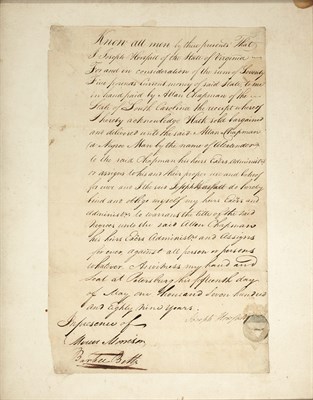 Know all men by these presents That
I Joseph Hosfall of the State of Virginia
For and in consideration of the sum of Seventy
Five pounds Current money of said State, to me
in hand paid by Allan Chapman of the
State of South Carolina the receipt whereof
I hereby acknowledge Hath sold bargained
and delivered unto the said Allan Chapman
(a Negroe Man by the name of Alexander)
to the said Chapman his heirs Exdrs Administrs
or assigns to his and their proper use and behoof
for ever and I the said Joseph Hosfall do hereby
bind and oblige myself my heirs Exdrs and
administrs to warrant the title of the said
Negroe unto the said Allan Chapman
his heirs Exdrs Administrs and Assigns
for ever, against all person or persons
whatever. As witness my hand and
Seal at Petersburg this fifteenth day
of May one thousand seven hundred
and Eighty nine years.
Joseph
In presence of
Morrison